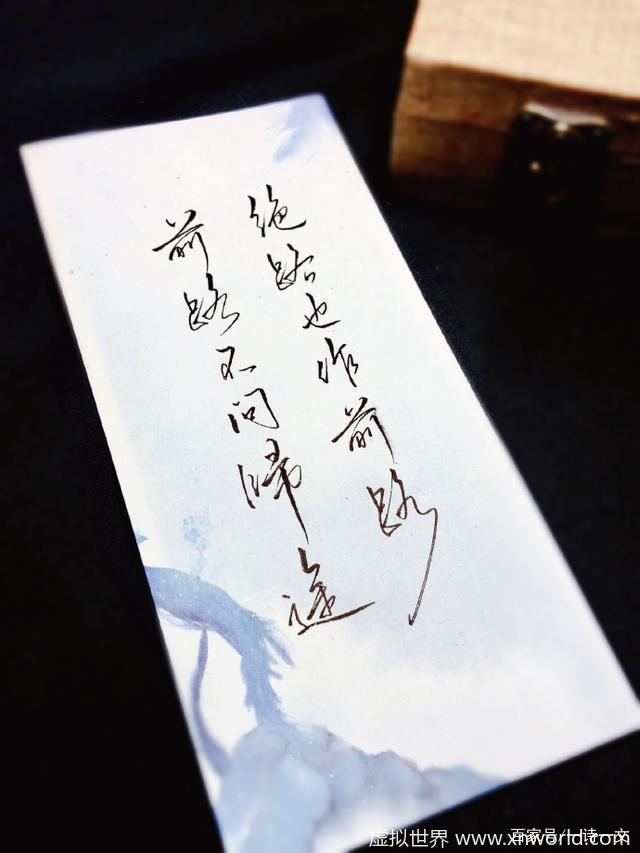 绝路也作前路
前路不问歸途
虚拟世界 www.xnworld.com
百家号/一诗一文